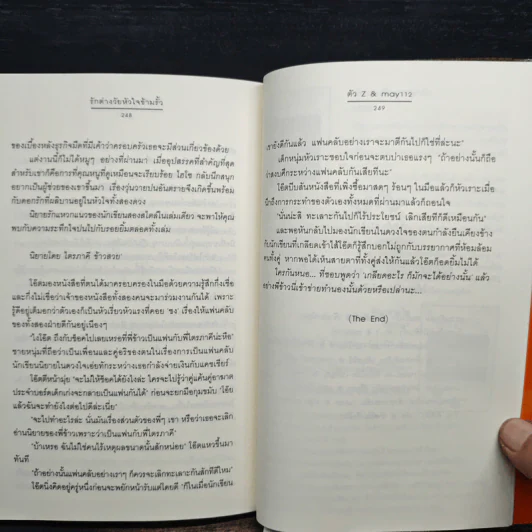 รักต่างวัยหัวใจข้ามรั้ว
248
ของเบื้องหลังธุรกิจมืดที่มีเค้าว่าครอบครัวเธอจะมีส่วนเกี่ยวข้องด้วย
แต่งานนี้ก็ไม่ได้หมูๆ อย่างที่ผ่านมา เมื่ออุปสรรคที่สำคัญที่สุด
สำหรับเขาก็คือการที่คุณหนูที่ดูเหมือนจะเรียบร้อย ไฮโซ กลับนึกสนุก
อยากเป็นผู้ช่วยของเขาขึ้นมา เรื่องวุ่นวายปนอันตรายจึงเกิดขึ้นพร้อม
กับดอกรักที่ผลิบานอยู่ในหัวใจทั้งสองดวง
นิยายรักแหวกแนวของนักเขียนสองสไตล์ในเล่มเดียว จะพาให้คุณ
พบกับความระทึกใจปนไปกับรอยยิ้มตลอดทั้งเล่ม
นิยายโดย ไตรภาคี ข้าวสวย
โอ๊ตมองหนังสือที่ตนได้มาครอบครองในมือด้วยความรู้สึกกึ่งเชื่อ
และกึ่งไม่เชื่อว่าเจ้าของหนังสือทั้งสองคนจะมาร่วมงานกันได้ เพราะ
รู้ดีอยู่เต็มอกว่าตัวเองก็เป็นหัวเรี่ยวหัวแรงที่คอย 'ชง' เรื่องให้แฟนคลับ
ของทั้งสองฝ่ายตีกันอยู่เนืองๆ
"ไงโอ๊ต ถึงกับช็อคไปเลยเหรอที่พี่ข้าวเป็นแฟนกับพี่ไตรภาคีน่ะหือ"
ชายหนุ่มที่ถือว่าเป็นเพื่อนและคู่อริของตนในเรื่องการเป็นแฟนคลับ
นักเขียนนิยายในดวงใจเอ่ยทักระหว่างรอกำลังจ่ายเงินกับแคชเชียร์
โอ๊ตตีหน้ามุ่ย "จะไม่ให้ช็อคได้ยังไงล่ะ ใครจะไปรู้ว่าคู่แค้นคู่อาฆาต
ประจำบอร์ดเด็กเก่งจะกลายเป็นแฟนกันได้" ก่อนจะยกมือกุมขมับ "โอ๊ย
แล้วฉันจะทำยังไงต่อไปดีล่ะเนี่ย"
"จะไปทำอะไรล่ะ นั่นมันเรื่องส่วนตัวของพี่ๆ เขา หรือว่าเธอจะเลิก
อ่านนิยายของพี่ข้าวเพราะว่าเป็นแฟนกับพี่ไตรภาคี"
"บ้าเหรอ ฉันไม่ใช่คนไร้เหตุผลขนาดนั้นสักหน่อย" โอ๊ตแหวขึ้นมา
ทันที
"ถ้าอย่างนั้นแฟนคลับอย่างเราๆ ก็ควรจะเลิกทะเลาะกันสักทีดีไหม"
โอ๊ตนิ่งคิดอยู่ครู่หนึ่งก่อนจะพยักหน้ารับแต่โดยดี "ก็ในเมื่อนักเขียน
ตัว Z & may112
249
เขายังดีกันแล้ว แฟนคลับอย่างเราจะมาตีกันไปก็ใช่ที่ล่ะนะ"
เด็กหนุ่มหัวเราะชอบใจก่อนจะตบบ่าเธอแรงๆ "ถ้าอย่างนั้นก็ถือ
ว่าสงบศึกระหว่างแฟนคลับกันเสียทีนะ"
โอ๊ตบีบสันหนังสือที่เพิ่งซื้อมาสดๆ ร้อนๆ ในมือแล้วก็หัวเราะเมื่อ
นึกถึงการกระทำของตัวเองทั้งหมดที่ผ่านมาแล้วก็ถอนใจ
"นั่นน่ะสิ ทะเลาะกันไปก็ไร้ประโยชน์ เลิกเสียทีก็ดีเหมือนกัน"
และพอหันกลับไปมองนักเขียนในดวงใจของตนกำลังยืนเคียงข้าง
กับนักเขียนที่เกลียดเข้าไส้โอ๊ตก็รู้สึกบอกไม่ถูกกับบรรยากาศที่ห้อมล้อม
คนทั้งคู่ หากพอได้เห็นสายตาที่ทั้งคู่ส่งให้กันแล้วโอ๊ตก็อดยิ้มไม่ได้
ใครกันหนอ... ที่ชอบพูดว่า 'เกลียดอะไร ก็มักจะได้อย่างนั้น' แล้ว
อย่างพี่ข้าวนี่เข้าข่ายทำนองนั้นด้วยหรือเปล่านะ...
(The End)